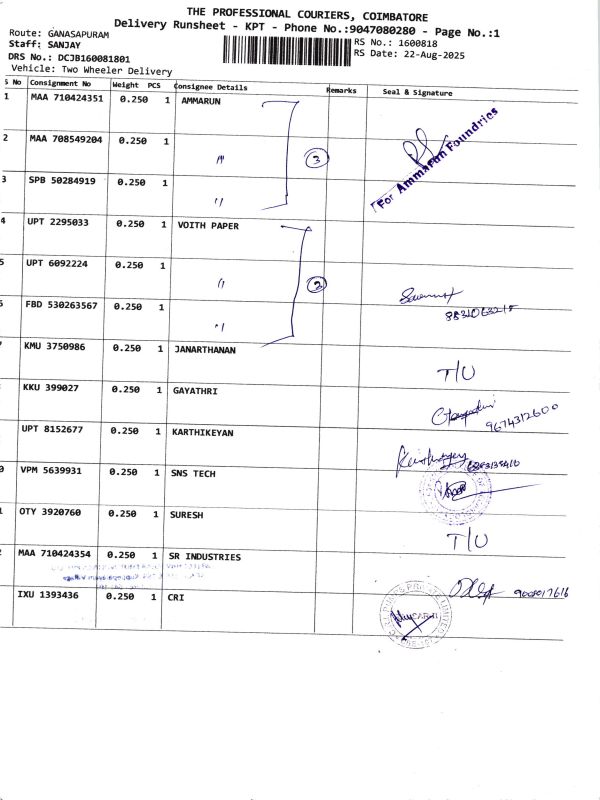 THE PROFESSIONAL COURIERS, COIMBATORE
Delivery Runsheet - KPT - Phone No.:9047080280 - Page No.:1
Route: GANASAPURAM
Staff: SANJAY
DRS No.: DCJB160081801
Vehicle: Two Wheeler Delivery
RS No.: 1600818
RS Date: 22-Aug-2025
S No Consignment No Weight PCS Consignee Details Remarks Seal & Signature
1 MAA 710424351 0.250 1 AMMARUN
2 MAA 708549204 0.250 1 " 3
3 SPB 50284919 0.250 1 "
For Ammarun Foundries
4 UPT 2295033 0.250 1 VOITH PAPER
5 UPT 6092224 0.250 1 " 2
FBD 530263567 0.250 1 "
KMU 3750986 0.250 1 JANARTHANAN T/U
KKU 399027 0.250 1 GAYATHRI 9674312600
UPT 8152677 0.250 1 KARTHIKEYAN
0 VPM 5639931 0.250 1 SNS TECH
1 OTY 3920760 0.250 1 SURESH T/U
2 MAA 710424354 0.250 1 SR INDUSTRIES
IXU 1393436 0.250 1 CRI